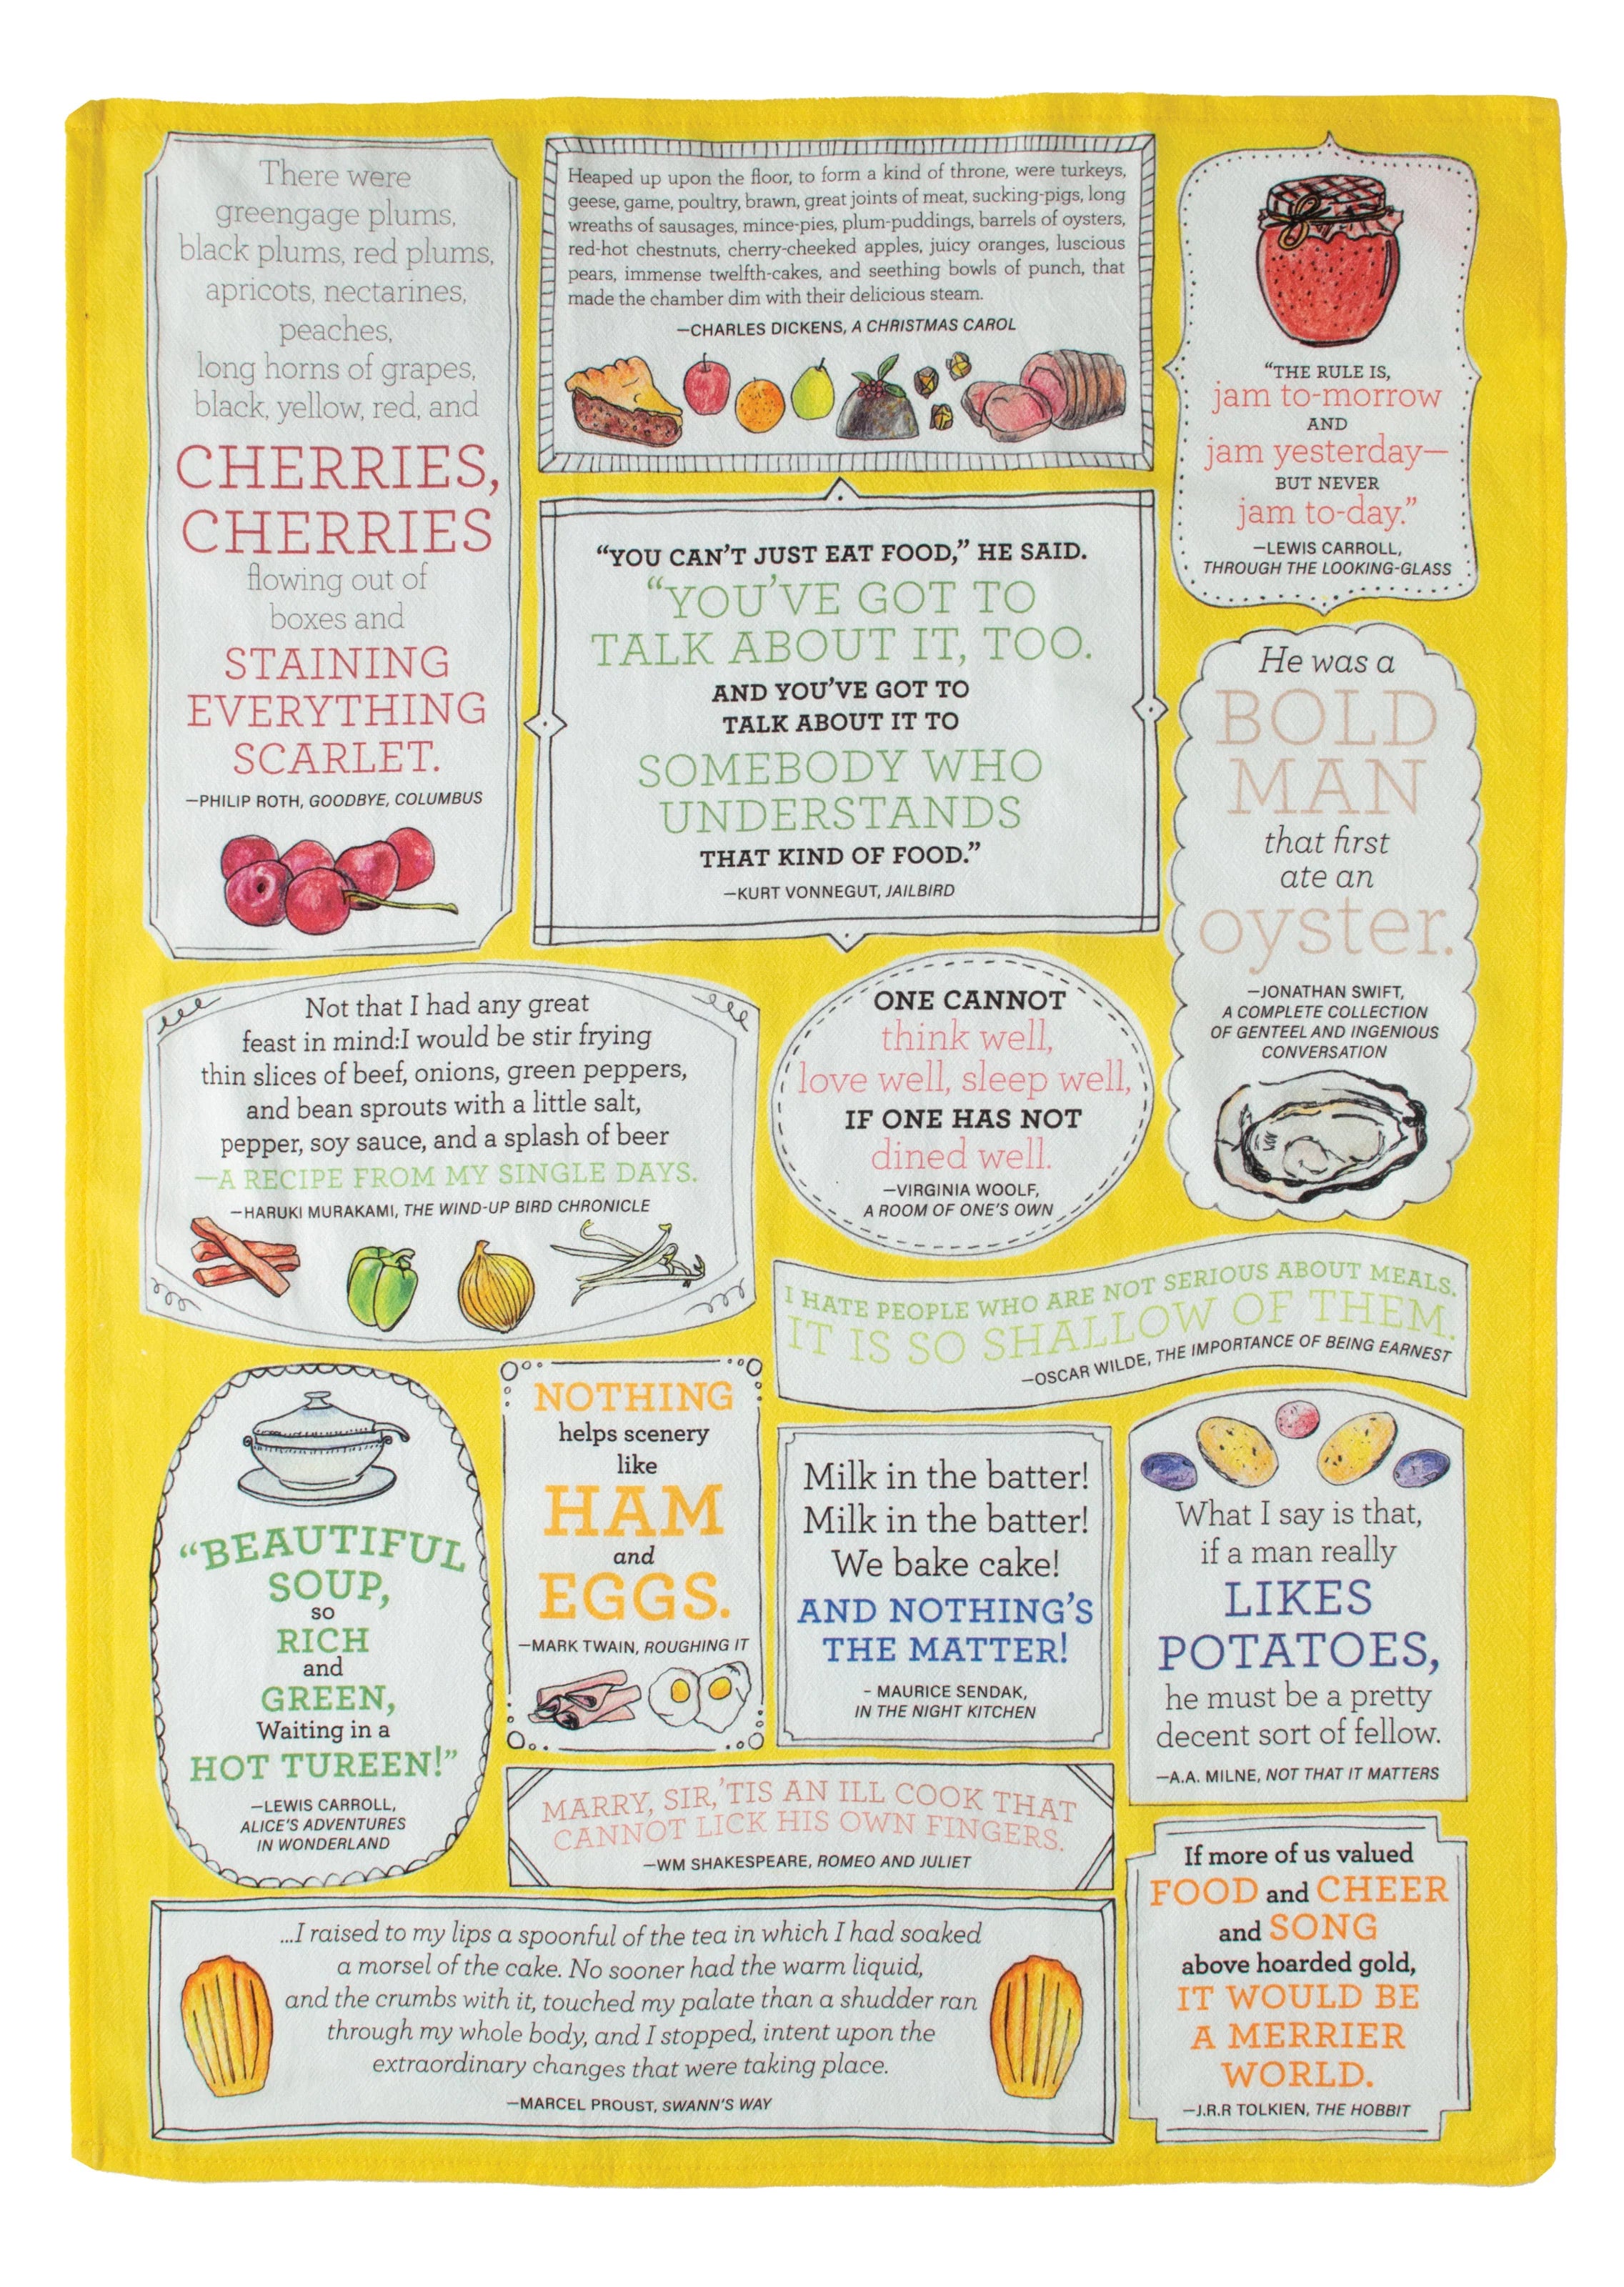 There were
greengage plums,
black plums, red plums,
apricots, nectarines,
peaches,
long horns of grapes,
black, yellow, red, and
CHERRIES,
CHERRIES
flowing out of
boxes and
STAINING
EVERYTHING
SCARLET.
—PHILIP ROTH, GOODBYE, COLUMBUS
Heaped up upon the floor, to form a kind of throne, were turkeys,
geese, game, poultry, brawn, great joints of meat, sucking-pigs, long
wreaths of sausages, mince-pies, plum-puddings, barrels of oysters,
red-hot chestnuts, cherry-cheeked apples, juicy oranges, luscious
pears, immense twelfth-cakes, and seething bowls of punch, that
made the chamber dim with their delicious steam.
—CHARLES DICKENS, A CHRISTMAS CAROL
"THE RULE IS,
jam to-morrow
AND
jam yesterday—
BUT NEVER
jam to-day."
—LEWIS CARROLL,
THROUGH THE LOOKING-GLASS
"YOU CAN'T JUST EAT FOOD," HE SAID.
"YOU'VE GOT TO
TALK ABOUT IT, TOO.
AND YOU'VE GOT TO
TALK ABOUT IT TO
SOMEBODY WHO
UNDERSTANDS
THAT KIND OF FOOD."
—KURT VONNEGUT, JAILBIRD
He was a
BOLD
MAN
that first
ate an
oyster.
—JONATHAN SWIFT,
A COMPLETE COLLECTION
OF GENTEEL AND INGENIOUS
CONVERSATION
Not that I had any great
feast in mind:I would be stir frying
thin slices of beef, onions, green peppers,
and bean sprouts with a little salt,
pepper, soy sauce, and a splash of beer
—A RECIPE FROM MY SINGLE DAYS.
—HARUKI MURAKAMI, THE WIND-UP BIRD CHRONICLE
ONE CANNOT
think well,
love well, sleep well,
IF ONE HAS NOT
dined well.
—VIRGINIA WOOLF,
A ROOM OF ONE'S OWN
I HATE PEOPLE WHO ARE NOT SERIOUS ABOUT MEALS.
IT IS SO SHALLOW OF THEM.
—OSCAR WILDE, THE IMPORTANCE OF BEING EARNEST
"BEAUTIFUL
SOUP,
SO
RICH
and
GREEN,
Waiting in a
HOT TUREEN!"
—LEWIS CARROLL,
ALICE'S ADVENTURES
IN WONDERLAND
NOTHING
helps scenery
like
HAM
and
EGGS.
—MARK TWAIN, ROUGHING IT
Milk in the batter!
Milk in the batter!
We bake cake!
AND NOTHING'S
THE MATTER!
- MAURICE SENDAK,
IN THE NIGHT KITCHEN
What I say is that,
if a man really
LIKES
POTATOES,
he must be a pretty
decent sort of fellow.
—A.A. MILNE, NOT THAT IT MATTERS
MARRY, SIR, 'TIS AN ILL COOK THAT
CANNOT LICK HIS OWN FINGERS.
—WM SHAKESPEARE, ROMEO AND JULIET
If more of us valued
FOOD and CHEER
and SONG
above hoarded gold,
IT WOULD BE
A MERRIER
WORLD.
—J.R.R TOLKIEN, THE HOBBIT
...I raised to my lips a spoonful of the tea in which I had soaked
a morsel of the cake. No sooner had the warm liquid,
and the crumbs with it, touched my palate than a shudder ran
through my whole body, and I stopped, intent upon the
extraordinary changes that were taking place.
—MARCEL PROUST, SWANN'S WAY